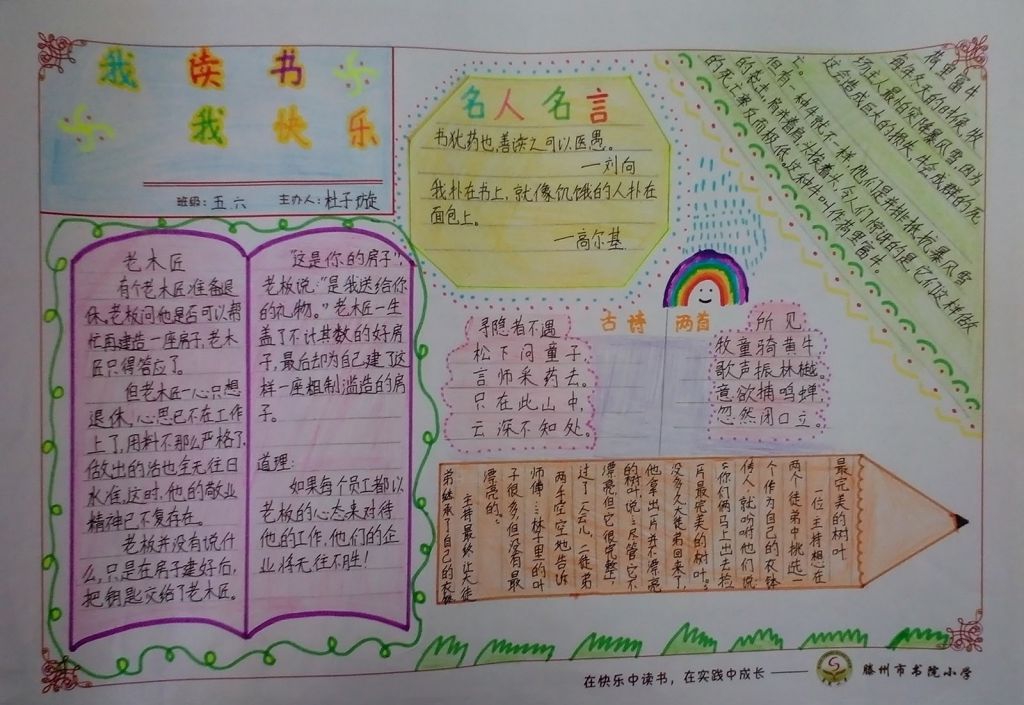 我 读 书
我 快 乐
班级：五 六 主办人：杜子璇
老木匠
有个老木匠准备退
休，老板问他是否可以帮
忙再建造一座房子，老木
匠只得答应了。
但老木匠一心只想
退休，心思已不在工作
上了，用料不那么严格了，
做出的活也全无往日
水准。这时，他的敬业
精神已不复存在。
老板并没有说什
么，只是在房子建好后，
把钥匙交给了老木匠。
“这是你的房子”，
老板说：“是我送给你
的礼物。”老木匠一生
盖了不计其数的好房
子，最后却为自己建了这
样一座粗制滥造的房
子。
道理：
如果每个员工都以
老板的心态来对待
他的工作，他们的企
业将无往不胜！
名人名言
书犹药也，善读之可以医愚。
—刘向
我扑在书上，就像饥饿的人扑在
面包上。
—高尔基
古诗 两首
寻隐者不遇
松下问童子，
言师采药去。
只在此山中，
云深不知处。
所见
牧童骑黄牛
歌声振林樾。
意欲捕鸣蝉，
忽然闭口立。
富牛
每年冬天的时候，牧
场主人最怕突降暴风雪，因为
这会造成巨大的损失，牛会成群的死
亡。
但有一种牛就不一样，他们是并排抵抗暴风雪
的袭击，肩并着肩，头挨着头，令人们惊讶的是，它们这样做
的死亡率反而极低，这种牛叫作
最完美的树叶
一位主持想在
两个徒弟中挑选一
个作为自己的衣钵
传人，就吩咐他们说：
“你们俩马上出去捡一
片最完美的树叶。”
没多久，大徒弟回来了，
他拿出一片并不漂亮
的树叶，说：“尽管它不
漂亮，但它很完整。”
过了一会儿，二徒弟
两手空空地告诉
师傅：“……林子里的叶
子很多，但没有最
漂亮的。”
主持最终让大徒
弟继承了自己的衣钵
在快乐中读书，在实践中成长 ——
滕州市书院小学